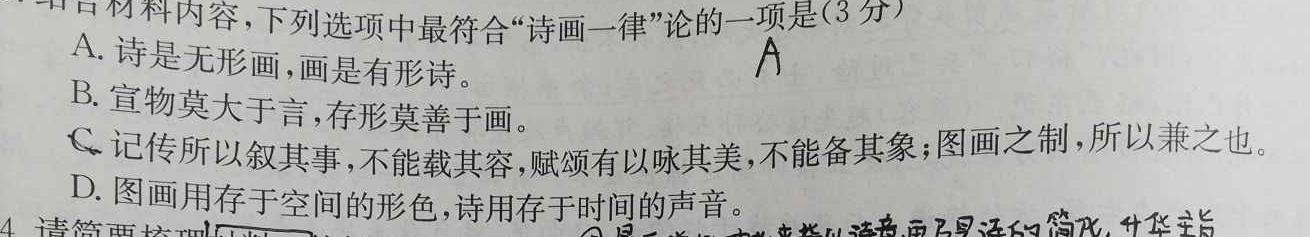 结合材料内容,下列选项中最符合“诗画一律”论的一项是(3分)
A
A. 诗是无形画,画是有形诗。
B. 宣物莫大于言,存形莫善于画。
C. 记传所以叙其事,不能载其容,赋颂有以咏其美,不能备其象;图画之制,所以兼之也。
D. 图画用存于空间的形色,诗用存于时间的声音。
4. 请简要梳理